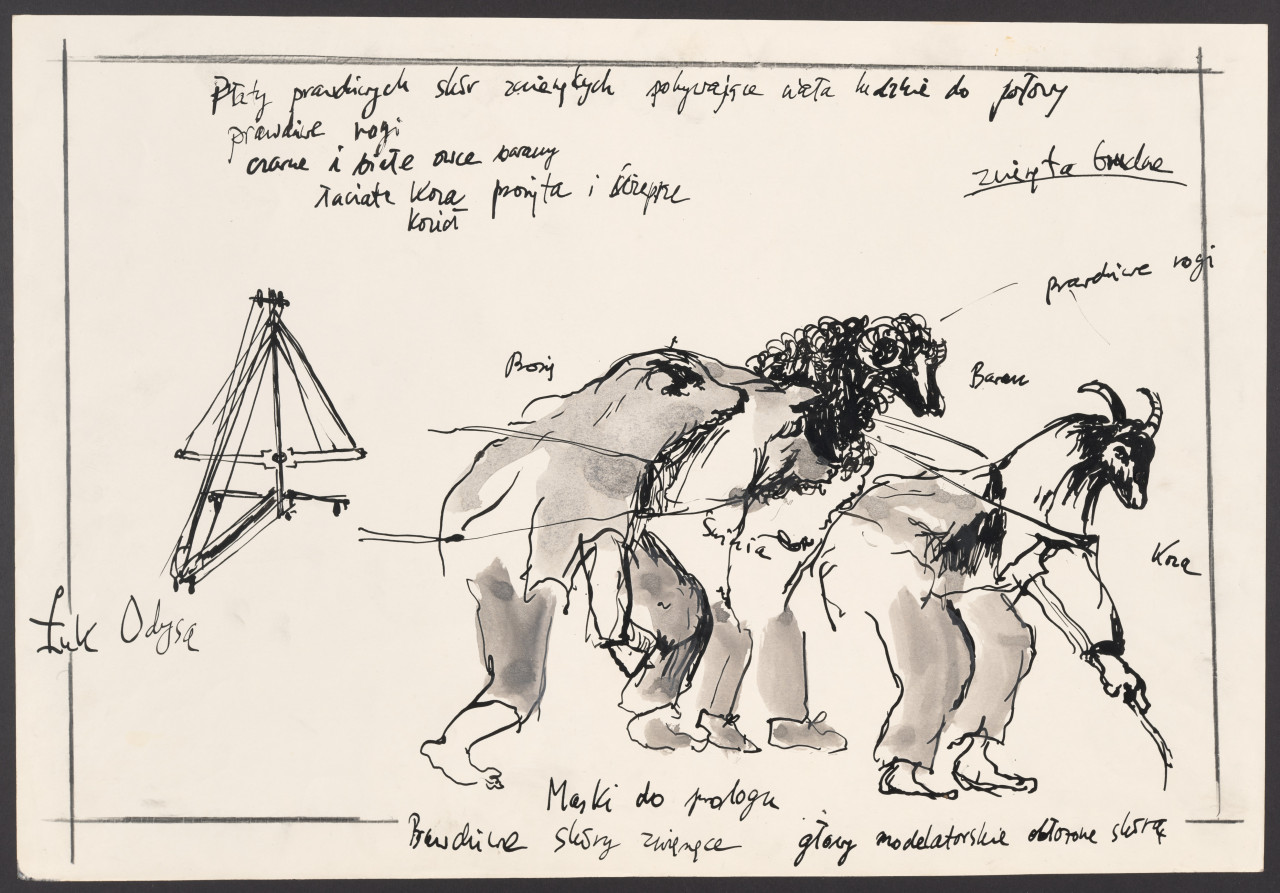 Płaty prawdziwych skór zwierzęcych pokrywające ciała ludzkie do połowy
prawdziwe rogi
czarne i białe owce barany
zwierzęta brudne
łaciate Koza prosięta i
Kozioł
prawdziwe rogi
Baran
Świnia
Koza
Łuk Odysa
Maski do prologu
Prawdziwe skóry zwierzęce głowy modelatorskie obłożone skórą